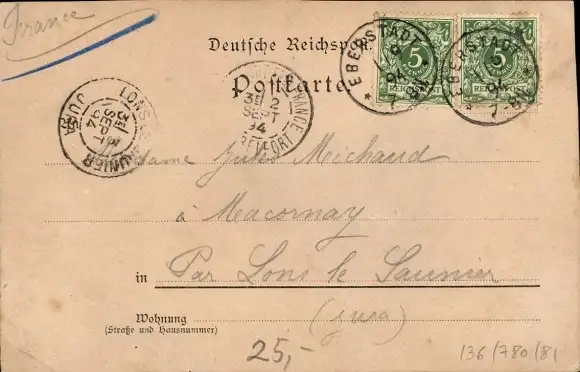 France
Deutsche Reichspost.
Postkarte
EBERSTADT
94
5
REICHSPOST
EBERSTADT
94
5
REICHSPOST
LONS-LE-SAUNIER
SEPT
94
JURA
2
SEPT
94
BELFORT
Madame Jules Michaud
à Macornay
in Par Lons le Saunier
Wohnung (jura)
(Straße und Hausnummer)
25,-
136/780/81